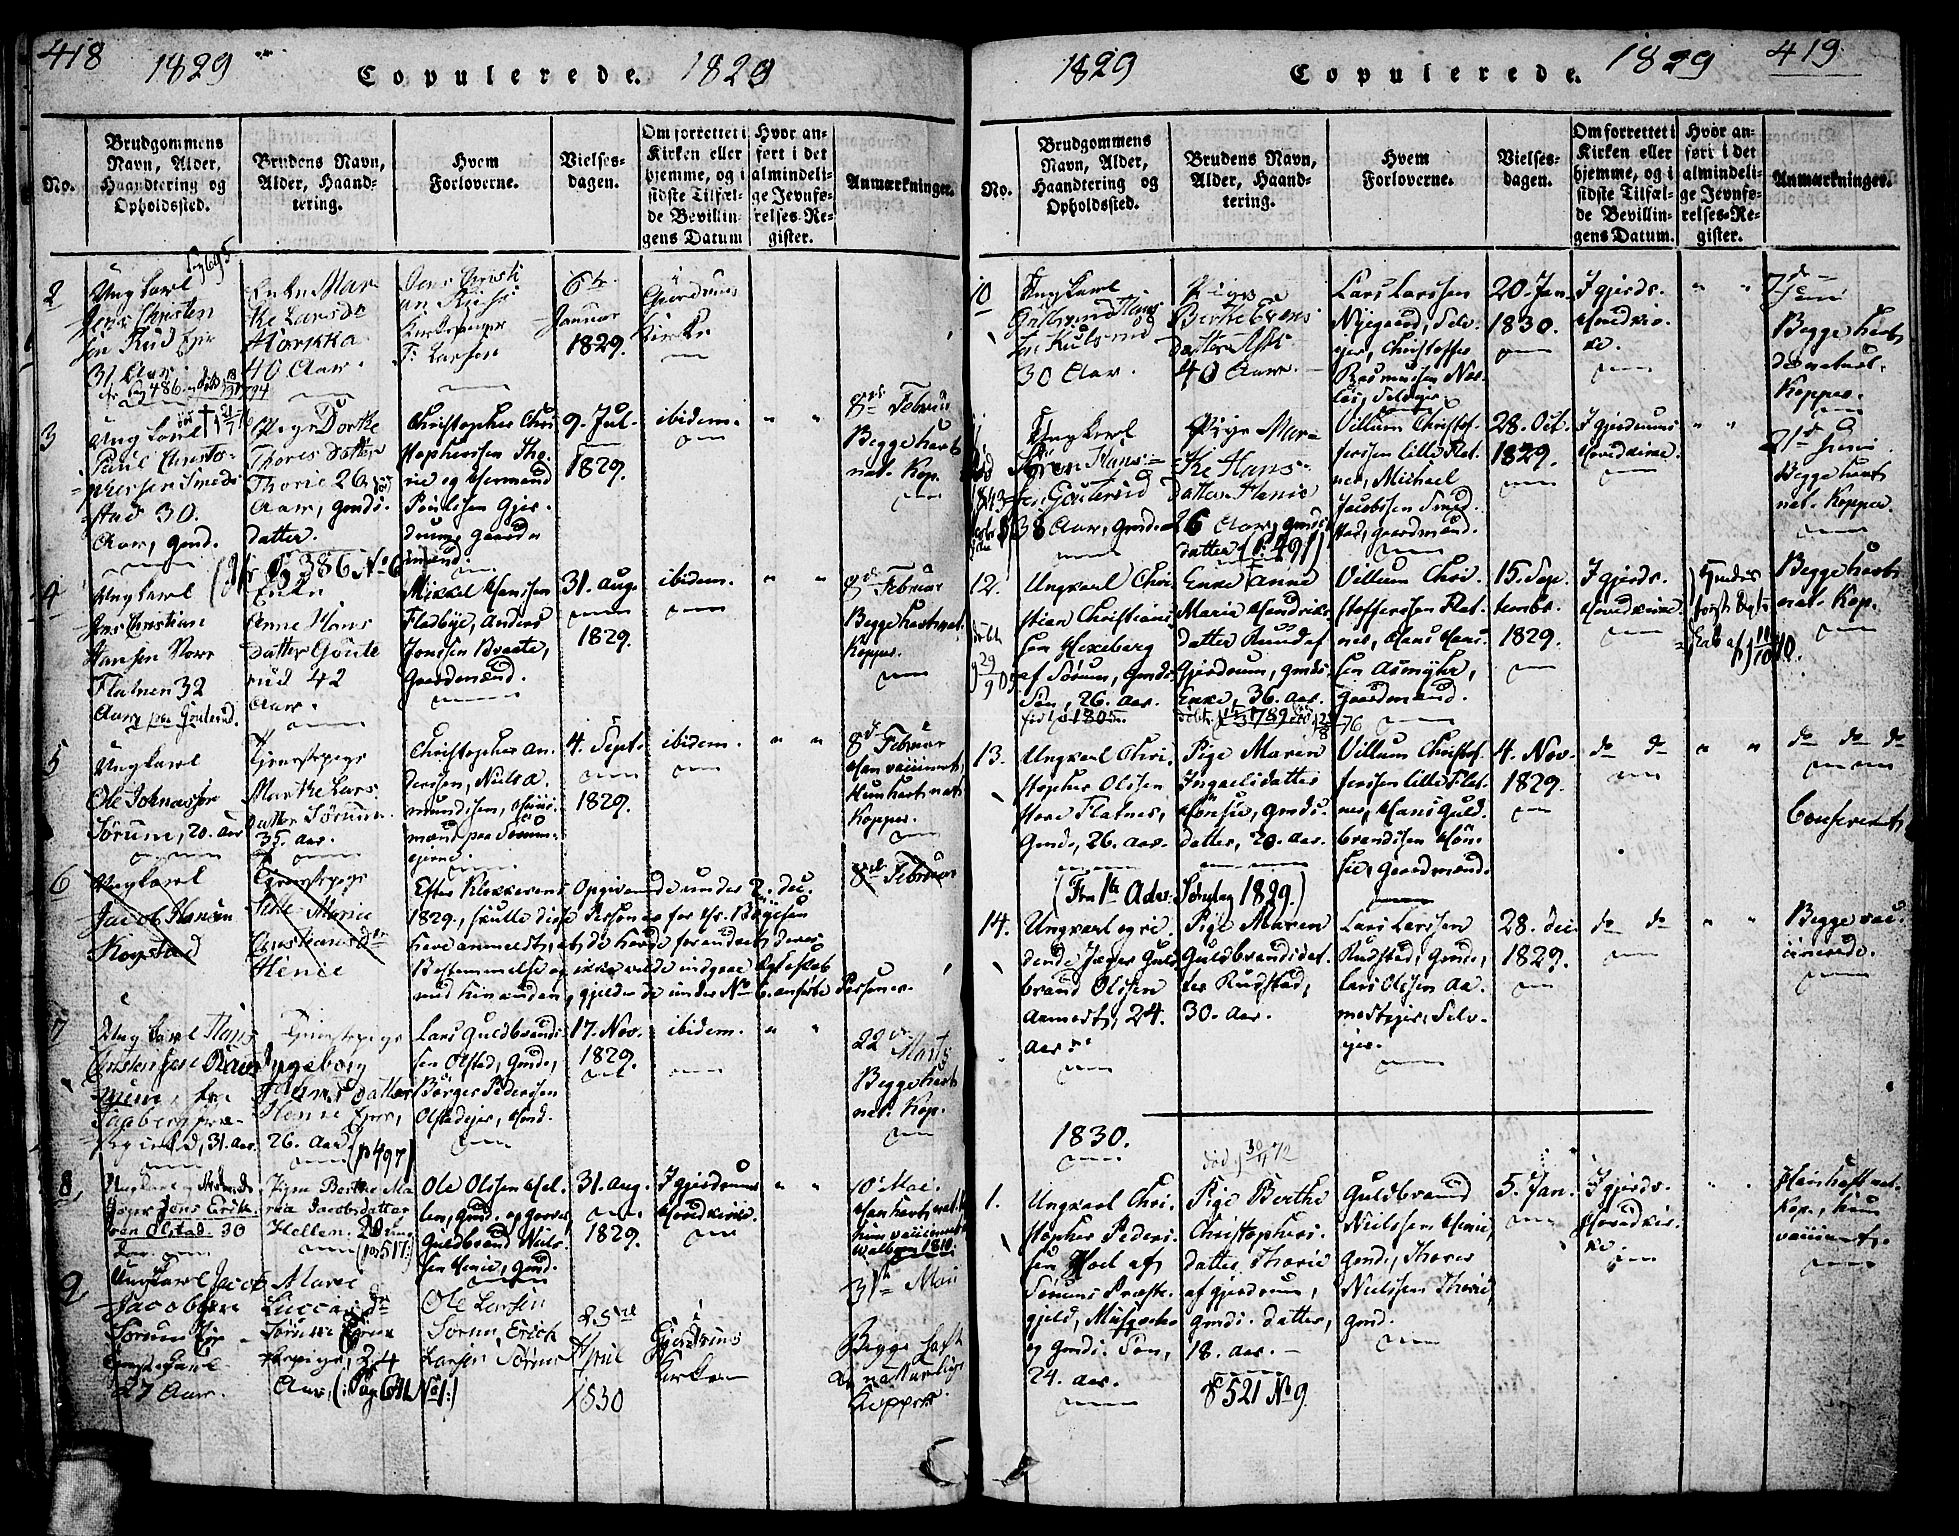 418
1829
Copulerede.
1829
No.
Brudgommens
Navn, Alder,
Haandtering og
Opholdssted.
Brudens Navn,
Alder, Haand-
tering.
Hvem
Forloverne.
Vielses-
dagen.
Om forrettet i
Kirken eller
hjemme, og i
sidste Tilfæl-
de Bevillin-
gens Datum
Hvor an-
ført i det
almindeli-
ge Jevnfø-
relses-Re-
gister.
Anmærkninger.
2
Ungkarl
Jens Christen
sen Rud Ejer
31 Aar
Enke Mar
the Larsdr
40 Aar.
Jens Christi
an
Kirkesanger
T. Larsen
6te
Januar
1829.
i
Gjerdrums
Kirke
3
Ungkarl
Paul Christo-
phersen Smeds
stad 30.
Aar, gmd.
Pige Dorthe
Thores datter
Thorie 26
Aar, gmds.
datter.
Christopher Chri
stophersen Tho-
rie og Hermand
Poulssen Gjer-
drum, Gaard-
mænd.
9. Jul.
1829.
ibidem.
" "
8de Februar
Begge havt
nat. Kop.
(Pg 386 No 6)
4
Ungkarl
Jens Christian
Hansen Store
Flatnen 32
Aar, paa Gouterud.
Enke
Anne Hans
datter Goute
rud 42
Aar.
Mikkel Hanssen
Fladbye, Anders
Jonssen Braate,
Gaardmænd.
31. Aug.
1829.
ibidem.
" "
8de Februar
Begge havt nat.
Kopper.
5
Ungkarl
Ole Johnassen
Sørum, 20. Aar
Tjenestepige
Marthe Lars
datter Sørum
35. Aar.
Christopher An-
dersen, Niels A-
mundsen, Huus-
mænd paa Sørum-
ejerne.
4. Sept.
1829.
ibidem.
" "
8de Februar
Han vaccineret,
Hun havt nat.
Kopper.
6
Ungkarl
Jacob Hansen
Kogstad
Tjenestepige
Marie
Christiansdtr
Henie
Efter Klokkerens Opgivende under 2. Dec.
1829, skulle disse Personer for Hr. Bøyesen
have anmeldt, at de havde forandret deres
Bestemmelse og ikke vilde indgaae Egteskab
med hinanden, gjelder de under No 6 anførte Personer.
8de Februar
7
Ungkarl Hans
Christensen
31. Aar.
Tjenestepige
Ingeborg
datter
Henie Ejer,
26. Aar (p 497)
Lars Guldbrands
sen Olstad, Gmd.,
Børger Pedersen
Olstadejer, Hmd.
17. Nov.
1829.
ibidem.
" "
22de Marts
Begge havt
nat. Kop.
8.
Jens Erik-
sen Olstad. 30
Aar
Pige Berthe Ma
ria Jacobsdatter
Hellen. 20
(pag 517)
Ole Olssen Hel-
len, Gmd. og
Guldbrand Niels-
sen Henie, Gmd.
31. Aug.
1829.
I Gjerdrums
Hovedkirke
" "
10 Mai.
Han havt nat. K
hun vaccineret
9
Ungkarl Jacob
Jacobsen
Sørum Ejer
27 Aar.
Marie
Luccia dr
Sørum Ejer
24
Aar, (: Pag No 1:)
Ole Larsen
Sørum, Erich
Larsen Sørum
25de
April
1830
i
Gjerdrums
Kirke
31te Mai
Begge haft
de naturlige
Kopper.
1829
Copulerede.
1829
419
No.
Brudgommens
Navn, Alder,
Haandtering og
Opholdssted.
Brudens Navn,
Alder, Haand-
tering.
Hvem
Forloverne.
Vielses-
dagen.
Om forrettet i
Kirken eller
hjemme, og i
sidste Tilfæl-
de Bevillin-
gens Datum.
Hvor an-
ført i det
almindeli-
ge Jevnfø-
relses-Re-
gister.
Anmærkninger.
10
Ungkarl
Gulbrand Hans
sen Kulsrud
30 Aar.
Pige
Berthe Evens
datter Ask
40 Aar.
Lars Larssen
Nygaard, Selv-
ejer, Christoffer
Rasmussen
20. Jan.
1830.
I Gjerdr.
Hovedkir-
ke.
" "
7de
Juni
Begge havt
de naturl.
Kopper.
11
Ungkarl
Søren Hans-
sen Gouterud
38 Aar, Gmd.
Pige Mari-
the Hans-
datter Henie
26 Aar, gmds.
datter (p. 491)
Villum Christof-
fersen lille Flat-
nes, Michael
Jacobssen Smed-
stad, Gaardmænd.
28. Oct.
1829.
I Gjerdrums
Hovedkirke.
" "
21de Juni.
Begge havt
nat. Kopper.
12.
Ungkarl Chri
stian Christians
sen Hexeberg
af Sørum, Gmds.
Søn, 26. Aar.
Enke Anne
Maria Hendriks
datter Ruud af
Gjerdrum, Gmds.
Enke, 36. Aar.
Villum Chri-
stoffersen Flat-
nes, Hans Han-
sen Asmyhr,
Gaardmænd.
15. Sep-
tembr.
1829.
I Gjerdr.
Hovedkirke
Begge havt
nat. Kop.
13.
Ungkarl Chri-
stopher Olssen
store Flatnes,
Gmd., 26. Aar.
Pige Maren
Ingvaldsdatter
Hønsie, Gmds.
datter, 20. Aar.
Villum Christof-
fersen lille Flat-
nes, Hans Guld-
brandssen Høn-
sie, Gaardmænd.
4. Nov.
1829.
do do
" "
do do do
Confereret
(Fra 1te Adv. Søndag 1829.)
14.
Ungkarl og ri-
dende Jæger Guld
brand Olssen
Aamodt, 24.
Aar.
Pige Maren
Guldbrandsdat-
ter Rudstad,
30. Aar.
Lars Larssen
Rudstad, Gmd.,
Lars Olssen Aa-
modtejer, Selv-
ejer.
28. Dec.
1829.
do do
" "
Begge vac-
cinerede.
1830.
død 30/11 72
1.
Ungkarl Chri-
stopher Peders-
sen Hoel af
Sørums Præste-
gjeld,
og Gmds. Søn,
24. Aar.
Pige Berthe
Christophers-
datter Thorie
af Gjerdrum,
Gmds. datter,
18. Aar.
P 521 No 9.
Guldbrand
Nielssen Henie,
Gmd., Thorer
Nielssen Thorie,
Gmd.
5. Jan.
I Gjerdr.
Hovedkir-
ke
" "
Han haft nat.
Kop., hun
vaccineret.